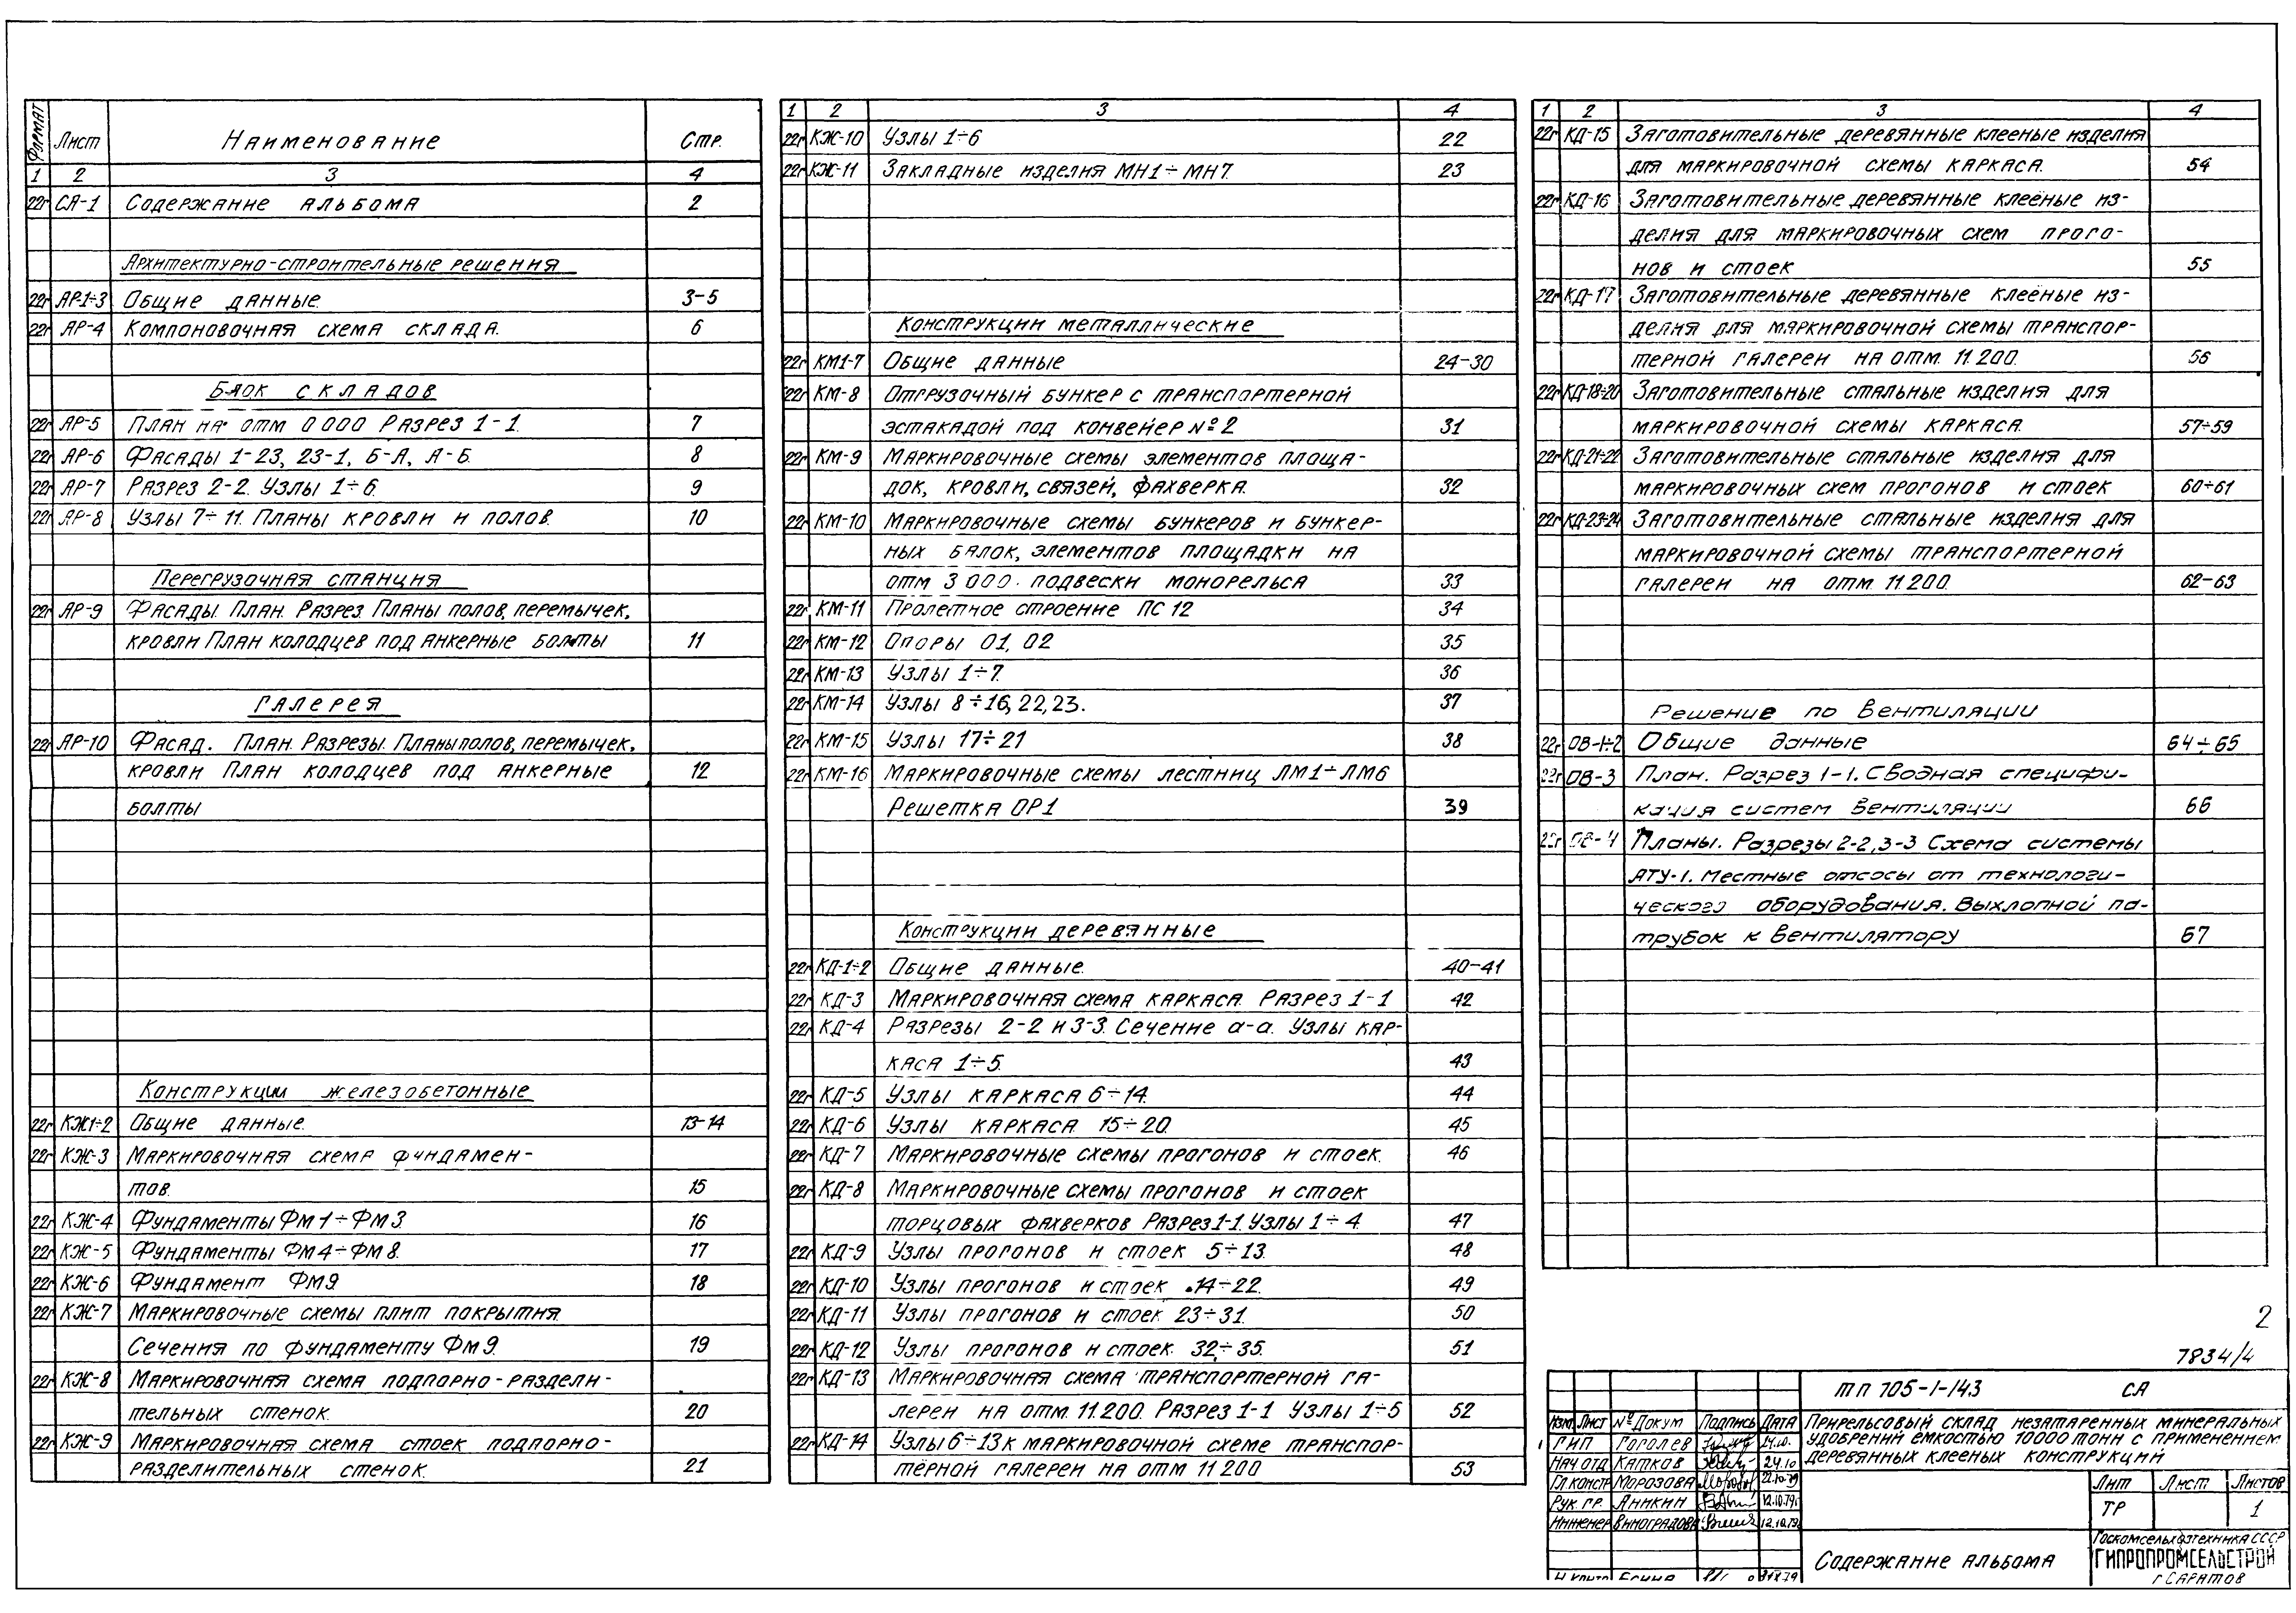 Формат Лист Наименование Стр.
1 2 3 4
22г СА-1 Содержание альбома 2
Архитектурно-строительные решения
22г АР-1÷3 Общие данные. 3-5
22г АР-4 Компоновочная схема склада. 6
Блок складов
22г АР-5 План на отм 0 000 Разрез 1-1. 7
22г АР-6 Фасады 1-23, 23-1, Б-А, А-Б. 8
22г АР-7 Разрез 2-2. Узлы 1÷6. 9
22г АР-8 Узлы 7÷11. Планы кровли и полов. 10
Перегрузочная станция
22г АР-9 Фасады. План. Разрез. Планы полов, перемычек,
кровли План колодцев под анкерные болты 11
Галерея
22г АР-10 Фасад. План. Разрезы. Планы полов, перемычек,
кровли План колодцев под анкерные 12
болты
Конструкции железобетонные
22г КЖ1÷2 Общие данные. 13-14
22г КЖ-3 Маркировочная схема фундамен-
тов. 15
22г КЖ-4 Фундаменты Фм1÷Фм3 16
22г КЖ-5 Фундаменты Фм4÷Фм8. 17
22г КЖ-6 Фундамент Фм9. 18
22г КЖ-7 Маркировочные схемы плит покрытия.
Сечения по фундаменту Фм9. 19
22г КЖ-8 Маркировочная схема подпорно-раздели-
тельных стенок. 20
22г КЖ-9 Маркировочная схема стоек подпорно-
разделительных стенок. 21
1 2 3 4
22г КЖ-10 Узлы 1÷6 22
22г КЖ-11 Закладные изделия МН1÷МН7. 23
Конструкции металлические
22г КМ1-7 Общие данные 24-30
22г КМ-8 Отгрузочный бункер с транспортерной
эстакадой под конвейер №2 31
22г КМ-9 Маркировочные схемы элементов площа-
док, кровли, связей, фахверка. 32
22г КМ-10 Маркировочные схемы бункеров и бункер-
ных балок, элементов площадки на
отм 3 000. подвески монорельса 33
22г КМ-11 Пролетное строение ПС 12 34
22г КМ-12 Опоры 01, 02 35
22г КМ-13 Узлы 1÷7. 36
22г КМ-14 Узлы 8÷16, 22, 23. 37
22г КМ-15 Узлы 17÷21 38
22г КМ-16 Маркировочные схемы лестниц ЛМ1÷ЛМ6
Решетка ОР1 39
Конструкции деревянные
22г КД-1÷2 Общие данные. 40-41
22г КД-3 Маркировочная схема каркаса. Разрез 1-1 42
22г КД-4 Разрезы 2-2 и 3-3. Сечение а-а. Узлы кар-
каса 1÷5. 43
22г КД-5 Узлы каркаса 6÷14. 44
22г КД-6 Узлы каркаса 15÷20. 45
22г КД-7 Маркировочные схемы прогонов и стоек. 46
22г КД-8 Маркировочные схемы прогонов и стоек
торцовых фахверков Разрез 1-1. Узлы 1÷4. 47
22г КД-9 Узлы прогонов и стоек 5÷13. 48
22г КД-10 Узлы прогонов и стоек 14÷22. 49
22г КД-11 Узлы прогонов и стоек 23÷31. 50
22г КД-12 Узлы прогонов и стоек 32÷35. 51
22г КД-13 Маркировочная схема транспортерной га-
лереи на отм. 11.200. Разрез 1-1 Узлы 1÷5 52
22г КД-14 Узлы 6÷13 к маркировочной схеме транспор-
тёрной галереи на отм 11 200 53
1 2 3 4
22г КД-15 Заготовительные деревянные клееные изделия
для маркировочной схемы каркаса. 54
22г КД-16 Заготовительные деревянные клеёные из-
делия для маркировочных схем прого-
нов и стоек 55
22г КД-17 Заготовительные деревянные клеёные из-
делия для маркировочной схемы транспор-
терной галереи на отм. 11.200. 56
22г КД-18÷20 Заготовительные стальные изделия для
маркировочной схемы каркаса. 57÷59
22г КД-21÷22 Заготовительные стальные изделия для
маркировочных схем прогонов и стоек 60÷61
22г КД-23-24 Заготовительные стальные изделия для
маркировочной схемы транспортерной
галереи на отм. 11.200. 62-63
Решение по вентиляции
22г ОВ-1÷2 Общие данные 64÷65
22г ОВ-3 План. Разрез 1-1. Сводная специфи-
кация систем вентиляции 66
22г ОВ-4 Планы. Разрезы 2-2, 3-3 Схема системы
АТУ-1. Местные отсосы от технологи-
ческого оборудования. Выхлопной па-
трубок к вентилятору 67
2
7834/4
ТП 705-1-143 СА
Изм. Лист № Докум Подпись Дата
Прирельсовый склад незатаренных минеральных
удобрений емкостью 10000 тонн с применением
деревянных клееных конструкций
ГИП Гоголев 24.10.
Нач отд Катков 24.10
Гл.констр Морозова 22.10.79
Рук. гр. Аникин 12.10.79г
Инженер Виноградова 12.10.79
Н.контр Есина
Лит Лист Листов
ТР 1
Содержание альбома
Госкомсельхозтехника СССР
ГИПРОПРОМСЕЛЬСТРОЙ
г Саратов